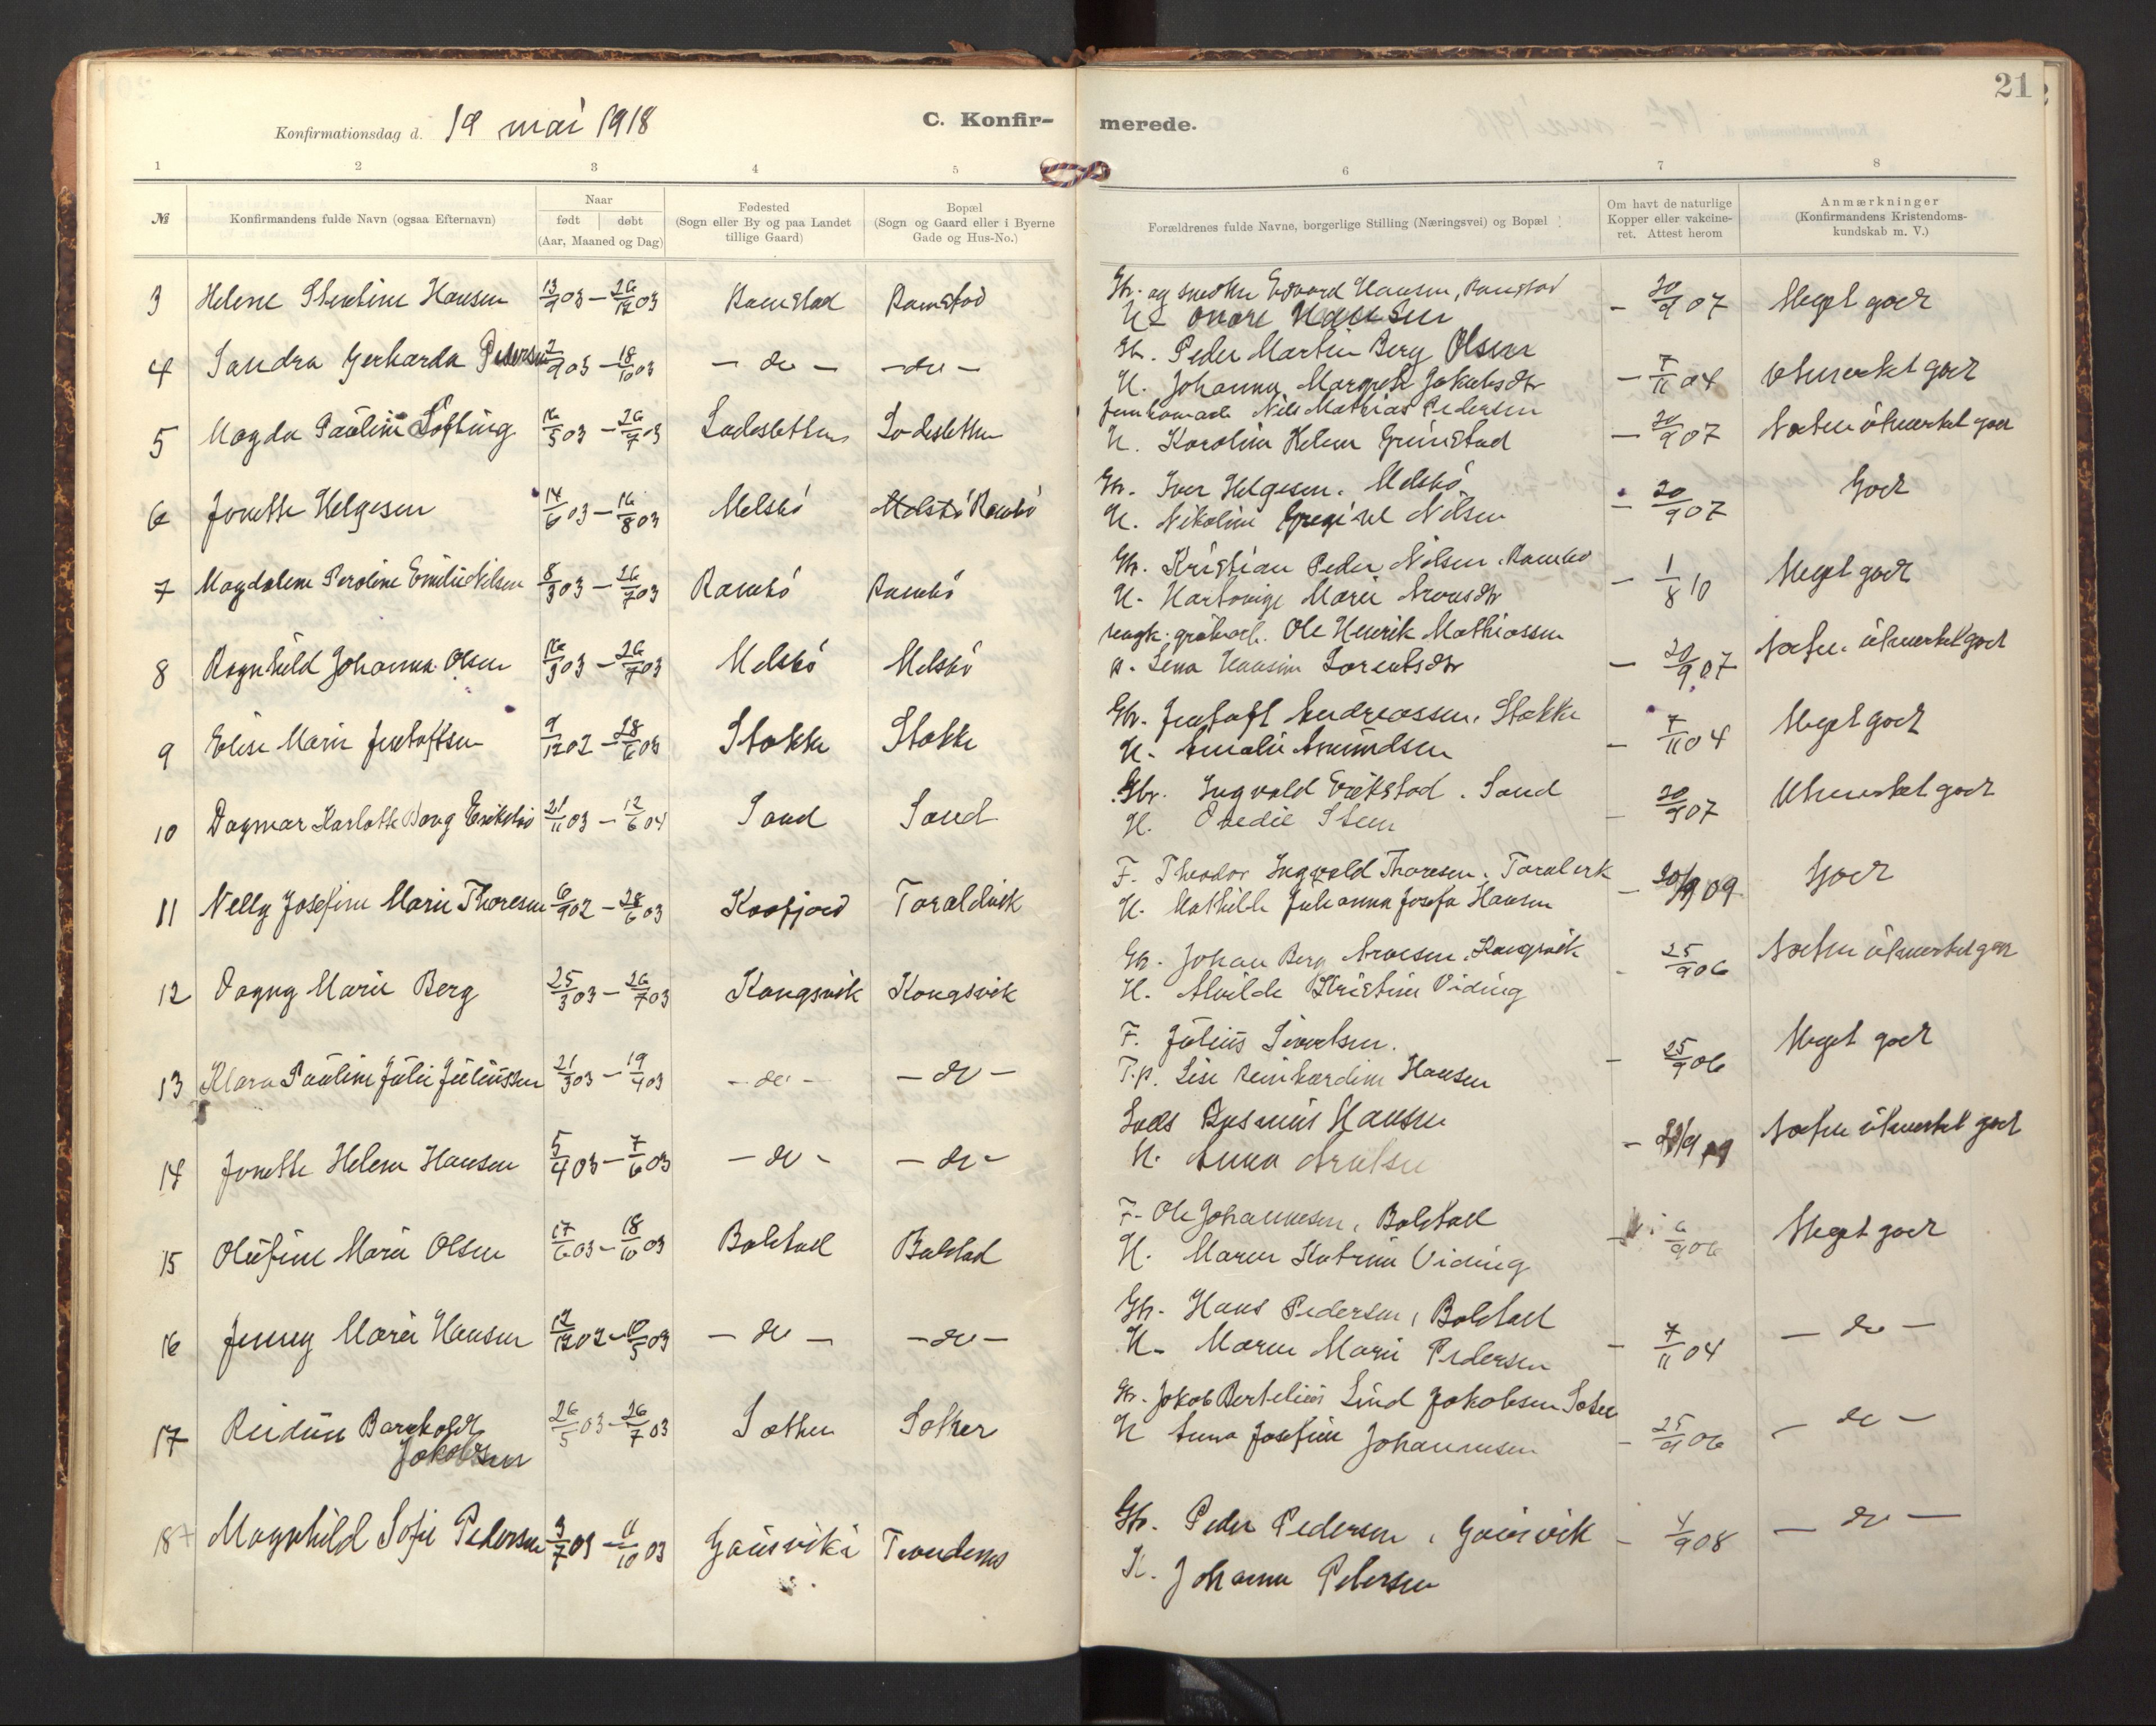 21
Konfirmationsdag d. 19 mai 1918
C. Konfir-
merede.
1 2 3 4 5 6 7 8
№
Konfirmandens fulde Navn (ogsaa Efternavn)
Naar
født døbt
(Aar, Maaned og Dag)
Fødested
(Sogn eller By og paa Landet
tillige Gaard)
Bopæl
(Sogn og Gaard eller i Byerne
Gade og Hus-No.)
Forældrenes fulde Navne, borgerlige Stilling (Næringsvei) og Bopæl
Om havt de naturlige
Kopper eller vakcine-
ret. Attest herom
Anmærkninger
(Konfirmandens Kristendoms-
kundskab m. V.)
3 Helene Hansen 13/9 03 — 26/12 03 Ramstad Ramstad
Gbr. og Edvard Hansen, Ramstad
H. Hansen
- 20/9 07 Meget god
4 Sandra Gerharda Pedersen 2/9 03 — 18/10 03 — do — — do —
Gbr. Peder Martin Berg Olsen
H. Johanna Margrete Jakobsdtr
- 7/11 04 Utmerket god
5 Magda Pauline Løfting 16/5 03 — 26/7 03 Ladesletten Ladesletten
Nils Mathias Pedersen
H. Karoline Helene Grimstad
- 20/9 07 Næsten utmerket god
6 Jonette Helgesen 14/6 03 — 16/8 03 Melsbø Melsbø Rambø
Gbr. Iver Helgesen. Melsbø
H. Nikoline Nilsen
- 20/9 07 God
7 Magdalene Peroline Emilie Nilsen 8/3 03 — 26/7 03 Rambø Rambø
Gbr. Kristian Peder Nilsen. Rambø
H. Hartvige Marie
- 1/8 10 Meget god
8 Ragnhild Johanna Olsen 16/3 03 — 26/7 03 Melsbø Melsbø
Ole Henrik Mathiassen
p. Lena Hansine Lorentsdtr
- 20/9 07 Næsten utmerket god
9 Elise Marie Gustafsen 9/12 02 — 28/6 03 Stokke Stokke
Gbr. Gustaf Andreassen. Stokke
H. Amalie Amundsen
- 7/11 04 Meget god
10 Dagmar Karlotte Erikstad 21/11 03 — 12/6 04 Sand Sand
Gbr. Ingvald Erikstad. Sand
H. Ovedie Steen
- 20/9 07 Utmerket god
11 Nelly Josefine Marie Thoresen 6/9 02 — 28/6 03 Kaafjord Taraldvik
F. Theodor Ingvald Thoresen. Taraldvik
H. Mathilde Johanna Josefa Hansen
- 20/9 09 God
12 Dagny Marie Berg 25/3 03 — 26/7 03 Kongsvik Kongsvik
Gbr. Johan Berg Arnesen. Kongsvik
H. Alvilde Kristine Viding
- 25/9 06 Næsten utmerket god
13 Klara Pauline Julie Juliussen 21/3 03 — 19/4 03 — do — — do —
F. Julius Sivertsen.
T.p. Lise Reinhardine Hansen
- 25/9 06 Meget god
14 Jonette Helene Hansen 5/4 03 — 7/6 03 — do — — do —
Rasmus Hansen
H. Anna
Næsten utmerket god
15 Olufine Marie Olsen 17/6 03 — 18/10 03 Bolstad Bolstad
F. Ole Johannesen, Bolstad
H. Maren Katrine Viding
- 6/9 06 Meget god
16 Jenny Marie Hansen 12/12 02 — 10/5 03 — do — — do —
Gbr. Hans Pedersen, Bolstad
H. Maren Marie Pedersen
- 7/11 04 — do —
17 Reidun Jakobsen 26/5 03 — 26/7 03 Sother Sother
Gbr. Jakob Bertelius Lind Jakobsen
H Anna Josefine Johannesen
- 25/9 06 — do —
18 Magnhild Sofie Pedersen 3/7 03 — 11/10 03 Gausvik Trondenes
Gbr. Peder Pedersen, Gausvik
H. Johanna Petersen
- 4/9 08 — do —